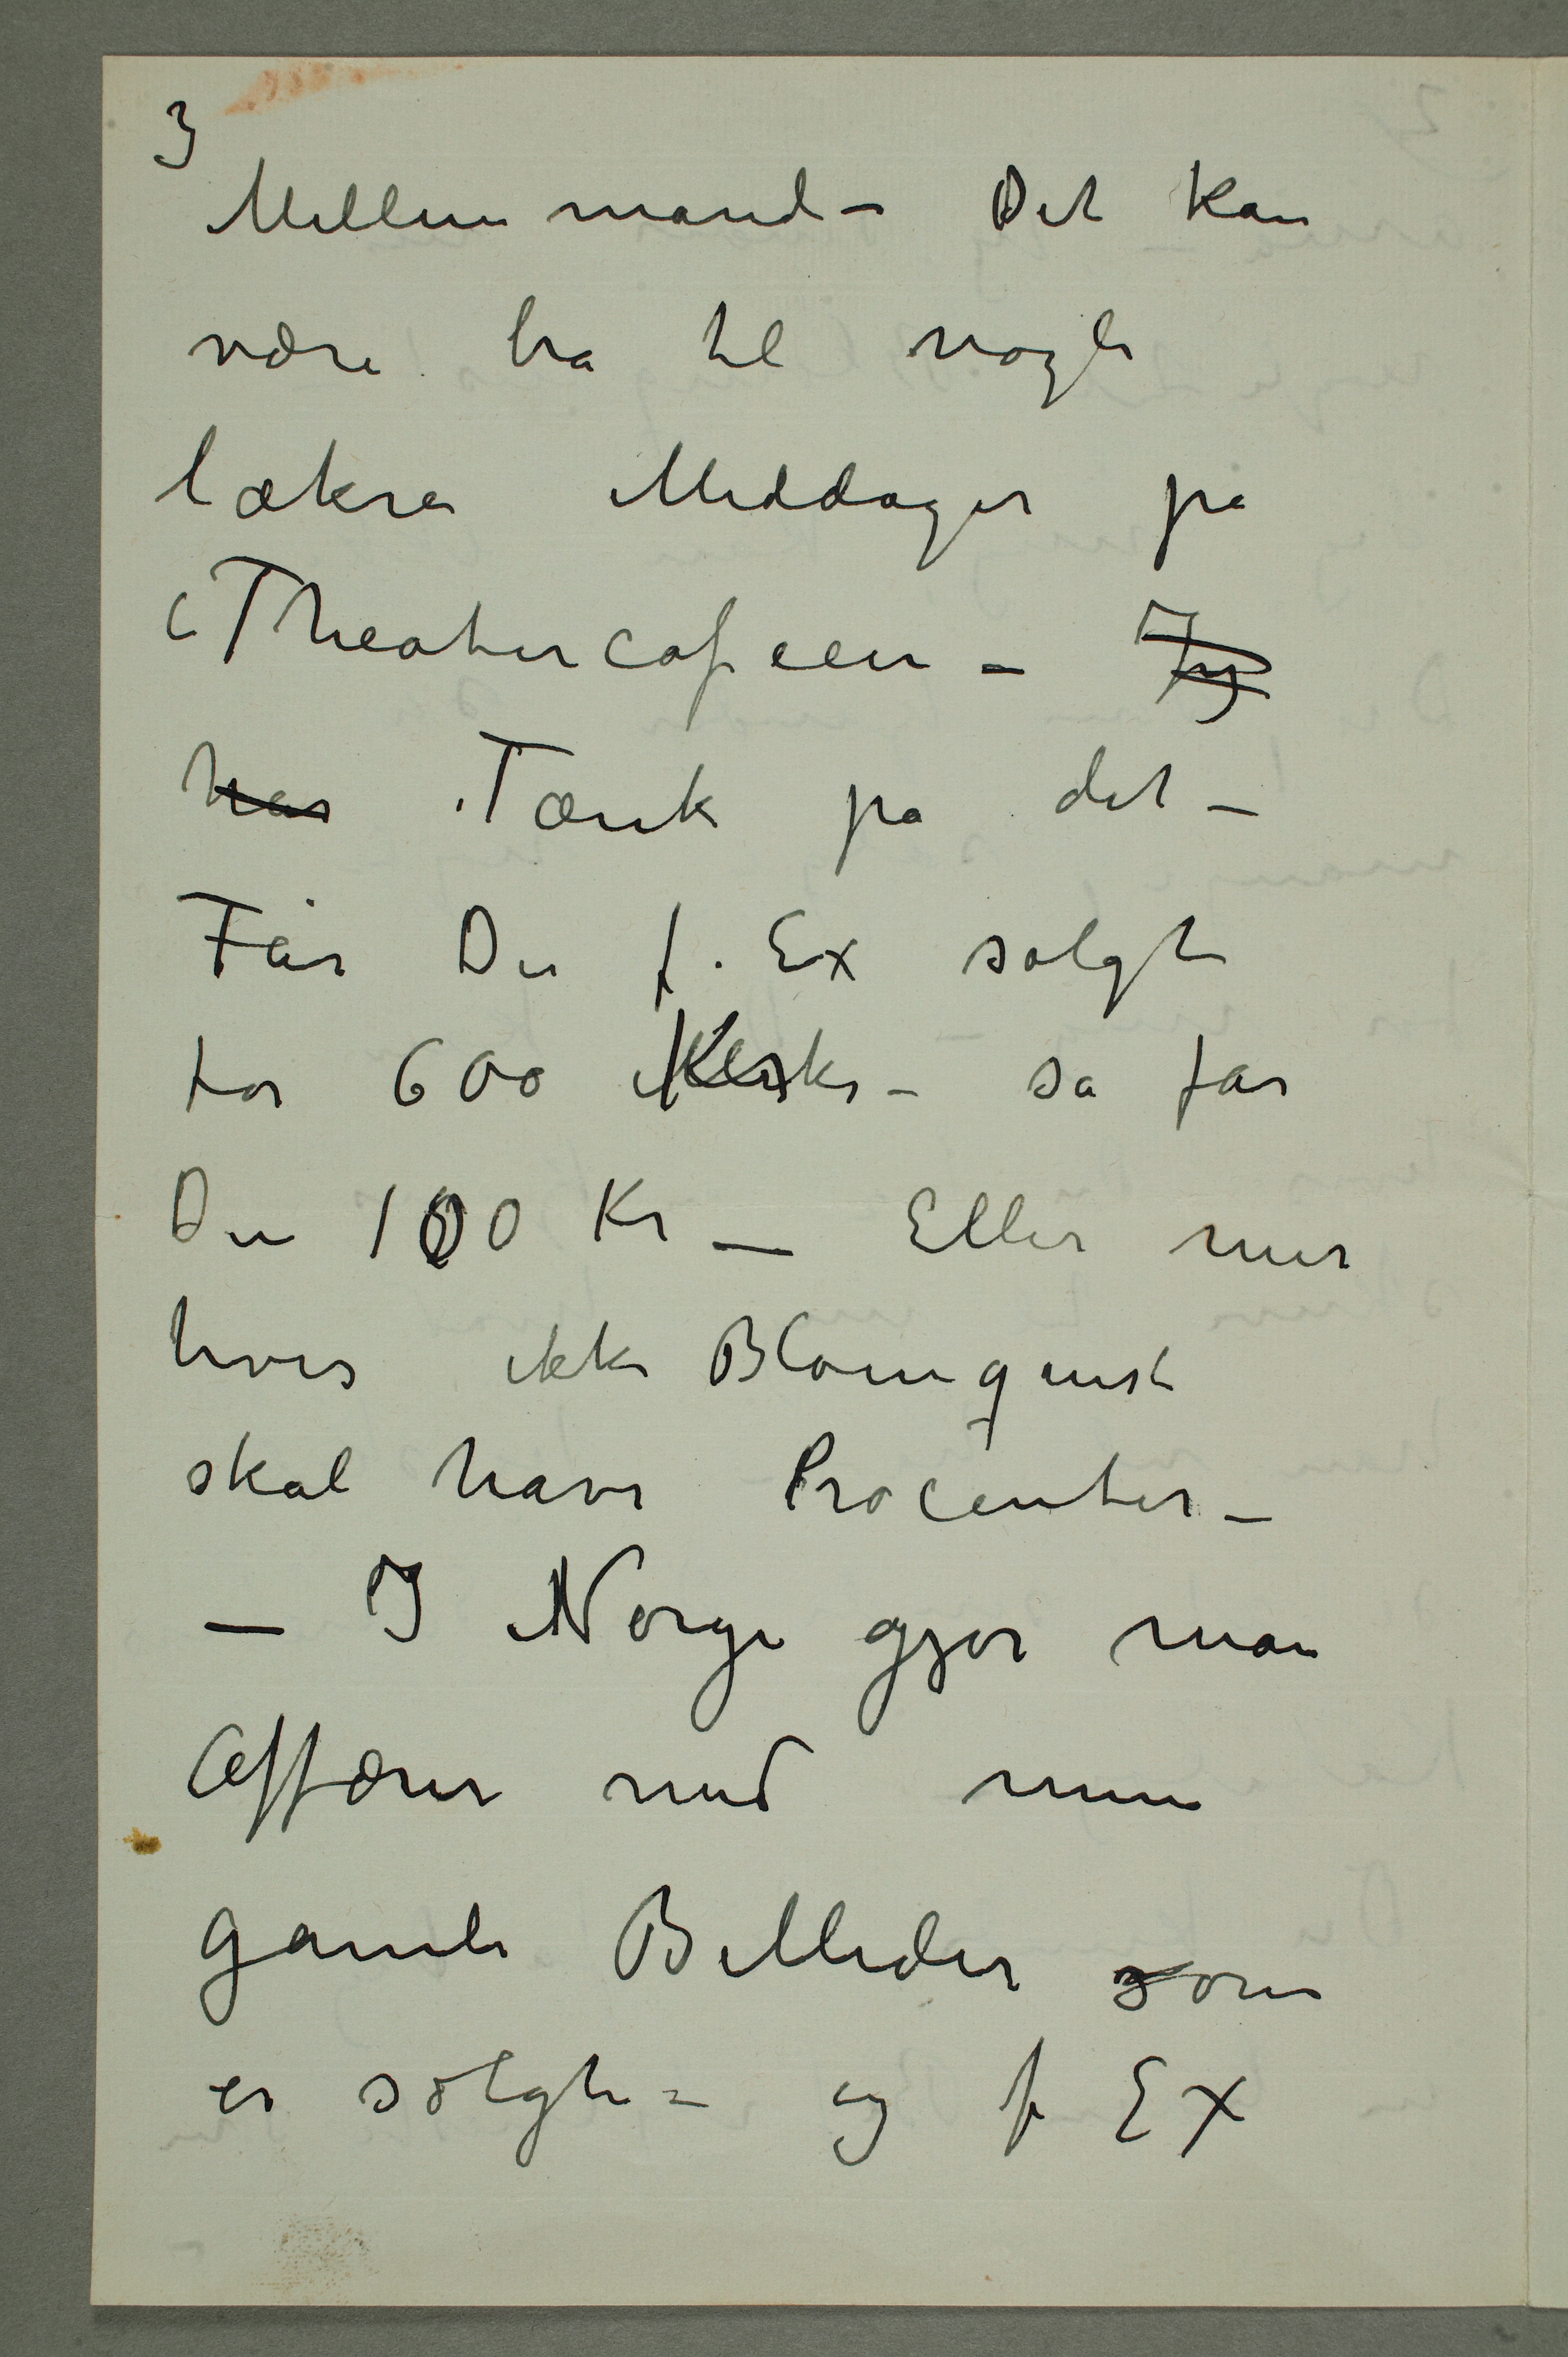 3
Mellemmand – Det kan
være bra til nogle
lækre Middager på
Theatercafeen – Jeg
har Tænk på det –
Får Du f. Ex solgt
for 600 kr – så får
Du 100 Kr – Eller mer
hvis ikke Blomquist
skal have Procenter –
– I Norge gjør man
Affærer med mine
gamle Billeder som
er solgte – og f Ex